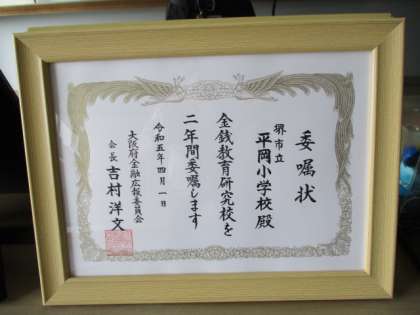 委嘱状
堺市立
平岡小学校殿
金銭教育研究校を
二年間委嘱します
令和五年四月一日
大阪府金融広報委員会
会長 吉村洋文